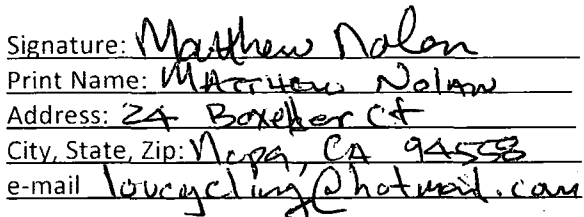 Signature: Matthew Nolan
Print Name: MATTHEW NOLAN
Address: 24 Ct
City, State, Zip: Napa, CA 94558
e-mail loucycling@hotmail.com